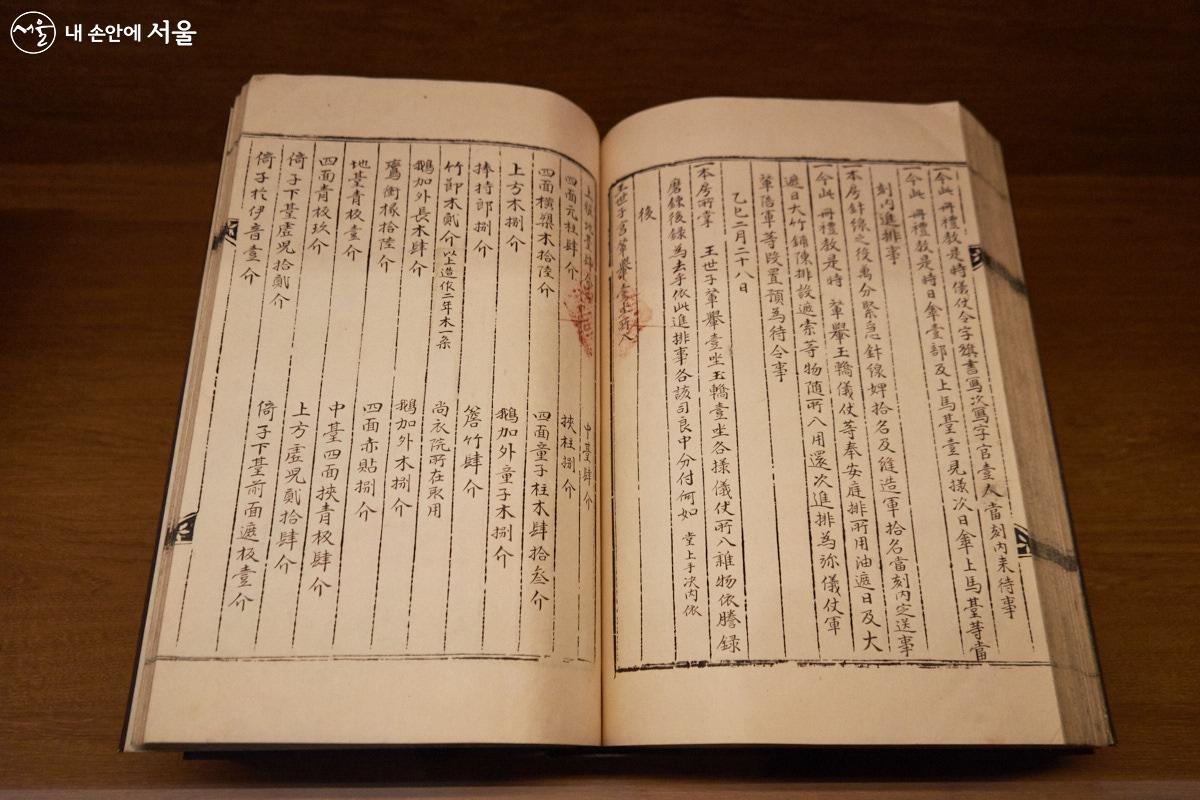 서울 내 손안에 서울
一今此 冊禮教是時儀仗令字旗書寫次寫字官壹人當刻內來待事
一今此 冊禮教是時日傘壹部及上馬臺壹見樣次日傘上馬臺等當
刻內進排事
一本房針線之役萬分緊急針線婢拾名及縫造軍拾名當刻內定送事
一今此 冊禮教是時 輦轝玉轎儀仗等奉安庭排所用油遮日及大
遮日大竹鋪陳排設遮索等物隨所入用還次進排為㫆儀仗軍
輦陪軍等段置預為待令事
乙巳二月二十八日
一本房所掌 王世子輦轝壹坐玉轎壹坐各樣儀仗所入雜物依謄錄
磨鍊後錄為去乎依此進排事各該司良中分付何如 堂上手決內依
後
王世子宮輦轝壹坐所入
上橫地臺肆介 中臺肆介
四面元柱肆介 挾柱捌介
四面橫樑木拾陸介 四面童子柱木肆拾叁介
上方木捌介 鵝加外童子木捌介
捧持郎捌介 簷竹肆介
竹節木貳介以上造作二年木一条 尚衣院所在取用
鵝加外長木肆介 鵝加外木捌介
鷰銜椽拾陸介 四面赤貼捌介
地臺青板壹介 中臺四面挾青板肆介
四面青板玖介 上方虛兒貳拾肆介
倚子下臺虛兒拾貳介 倚子下臺前面遮板壹介
倚子於伊音壹介